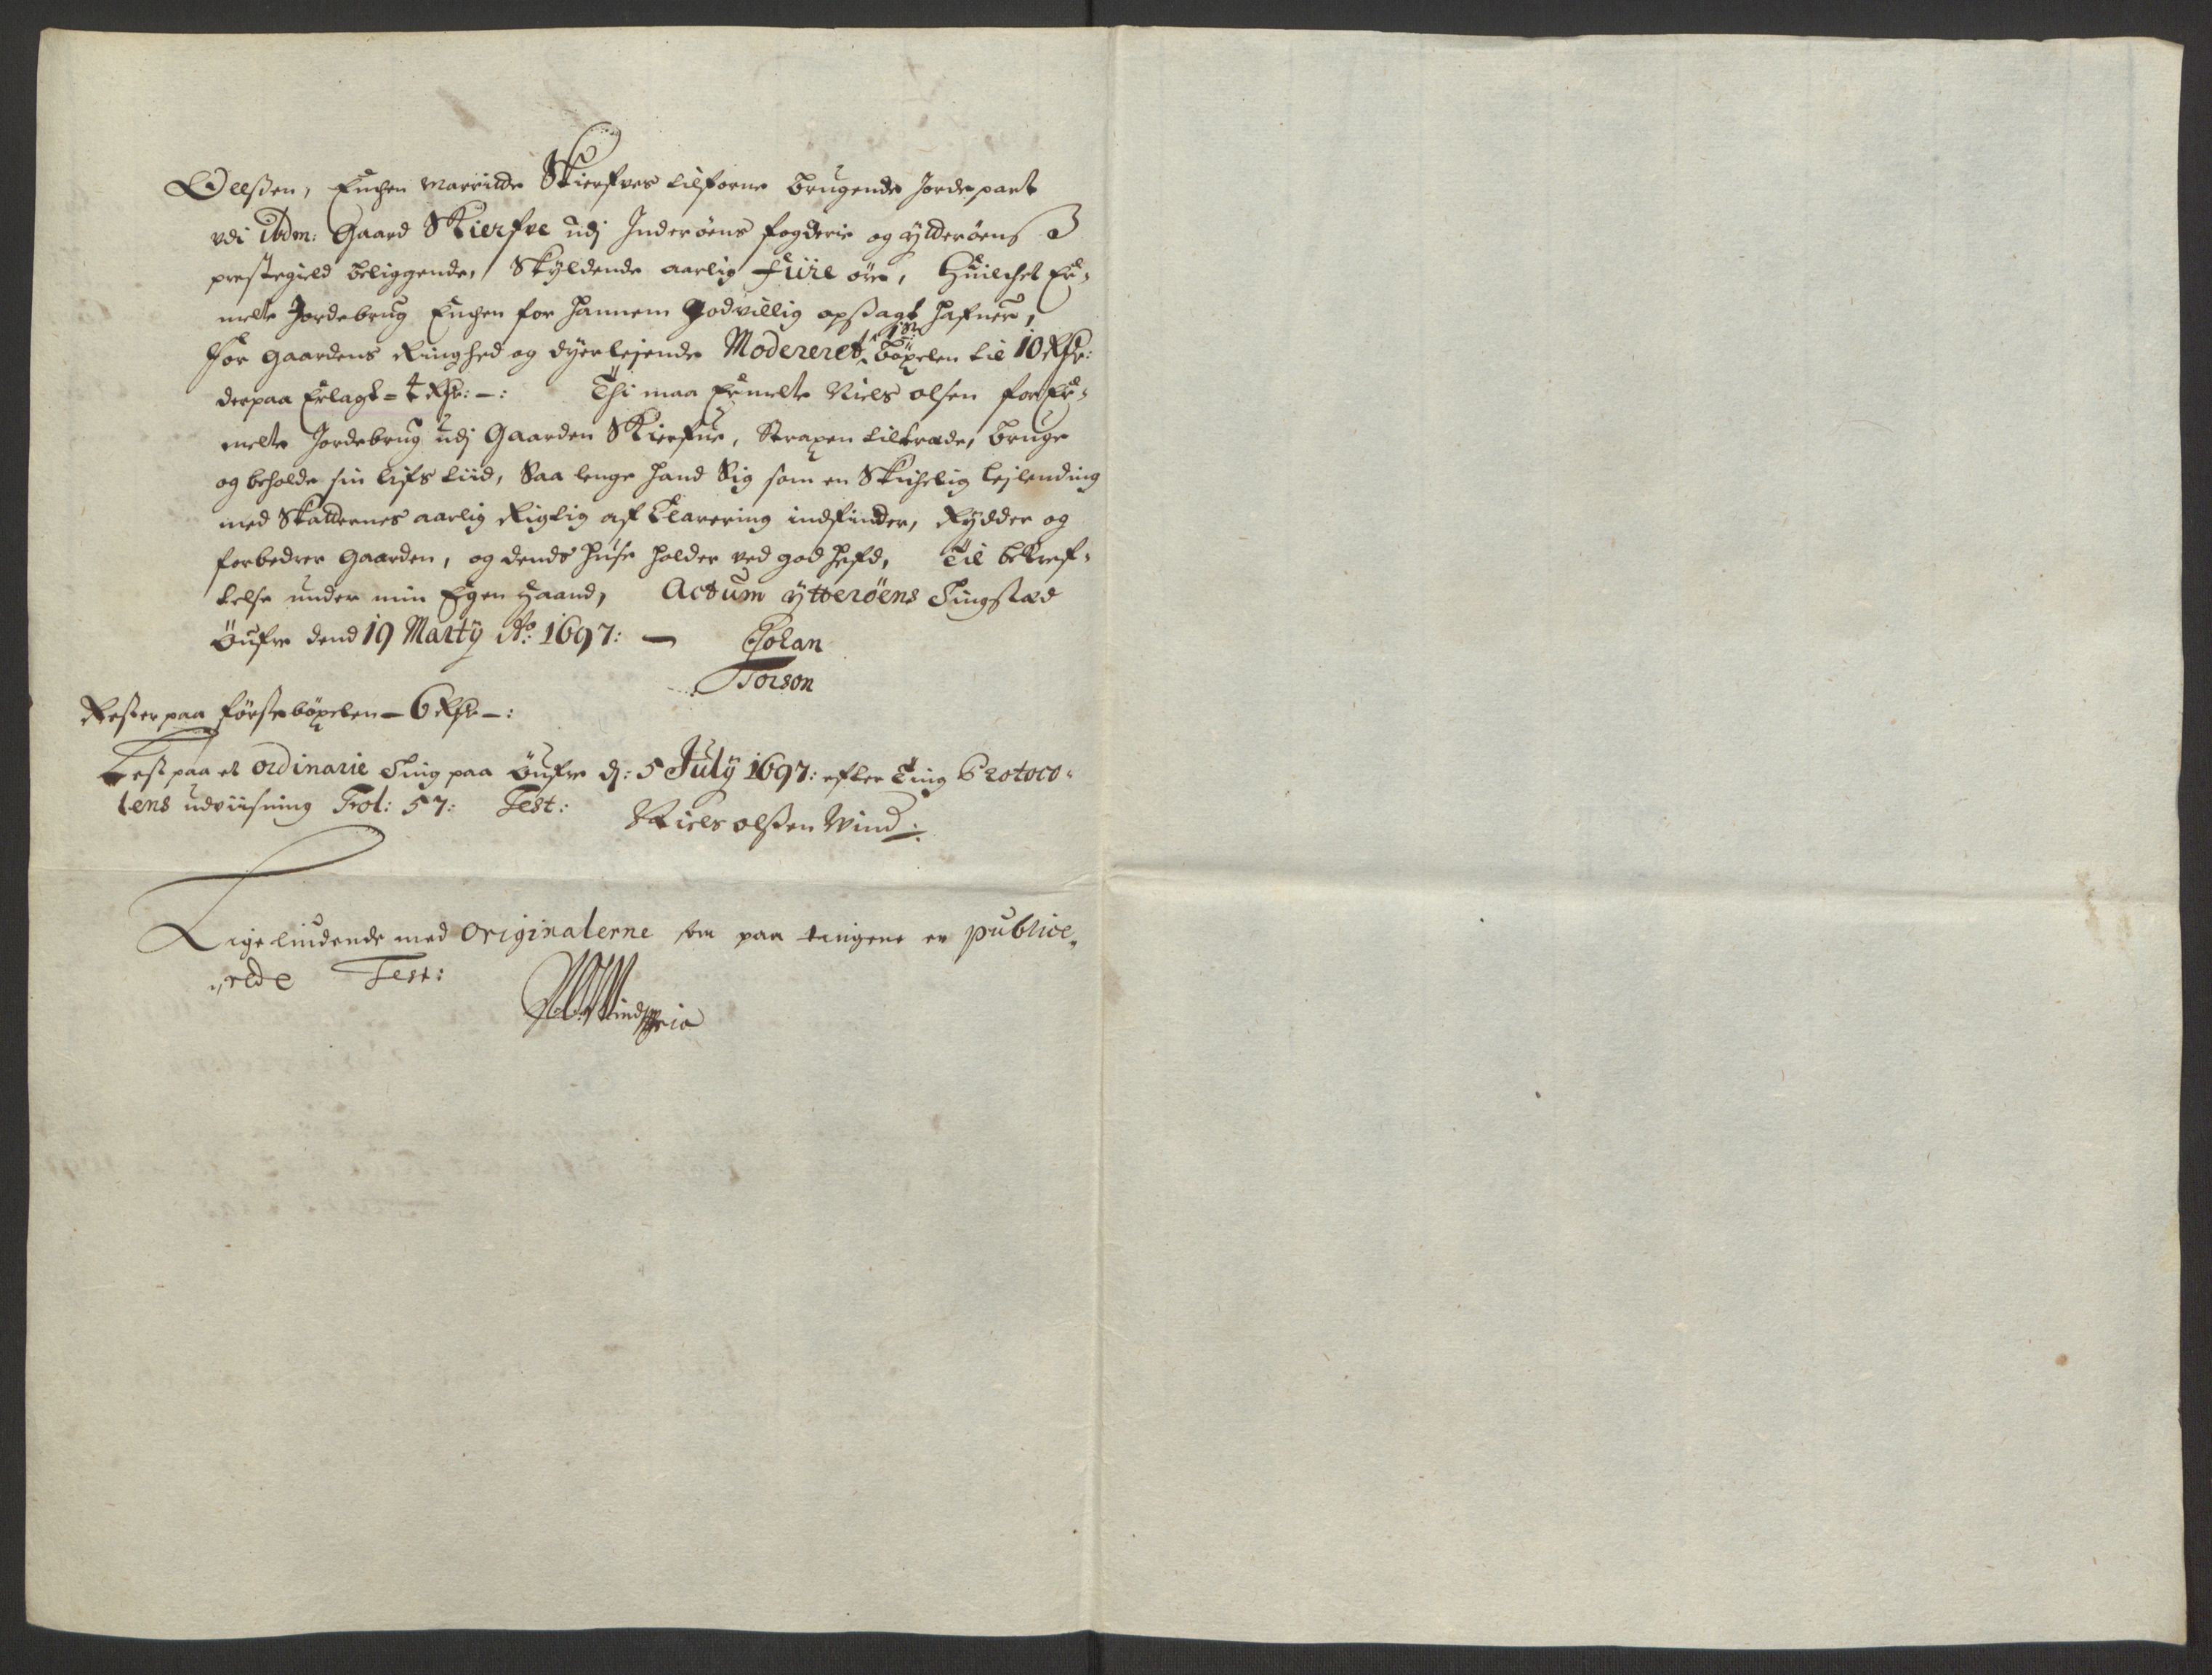 Olssen, Enchen Marritte Skierfves tilforne brugende Jordepart
udi ibdm: Gaard Skierfve udj Inderöens fogderie og ytteröens
prestegield beliggende, Skyldende aarlig fiire öre, Huilchet be-
melte Jordebrug Enchen for hannem Godvillig opsagt hafuer,
For Gaardens Ringhed og dyerlejende Modereret 1st böxelen til 10 Rdr:
derpaa Erlagt = 4 Rdr: -: Thi maa bemelte Niels olsen forbe-
melte Jordebrug udj Gaarden Skierfue, Straxen tiltræde, bruge
og beholde sin lifs tiid, Saa lenge hand Sig som en Skichelig lejlending
med Skatternes aarlig Rigtig af Clarering indfinder, Rydder og
forbedrer Gaarden, og dends Huse holder ved god hefd, Til bekref-
telse under min Egen Haand, Actum ytteröens Tingstæd
Öufre dend 19 Martij Ao: 1697: — Johan
Torson
Rester paa förste böxelen - 6 Rdr -:
Lest paa et ordinarie Ting paa Öufre dj: 5 July 1697: efter Ting Protoco-
lens udviisning Fol: 57: Test: Niels olssen Wind
Lige liudende med originalerne som paa tingene er publice-
rede Test: